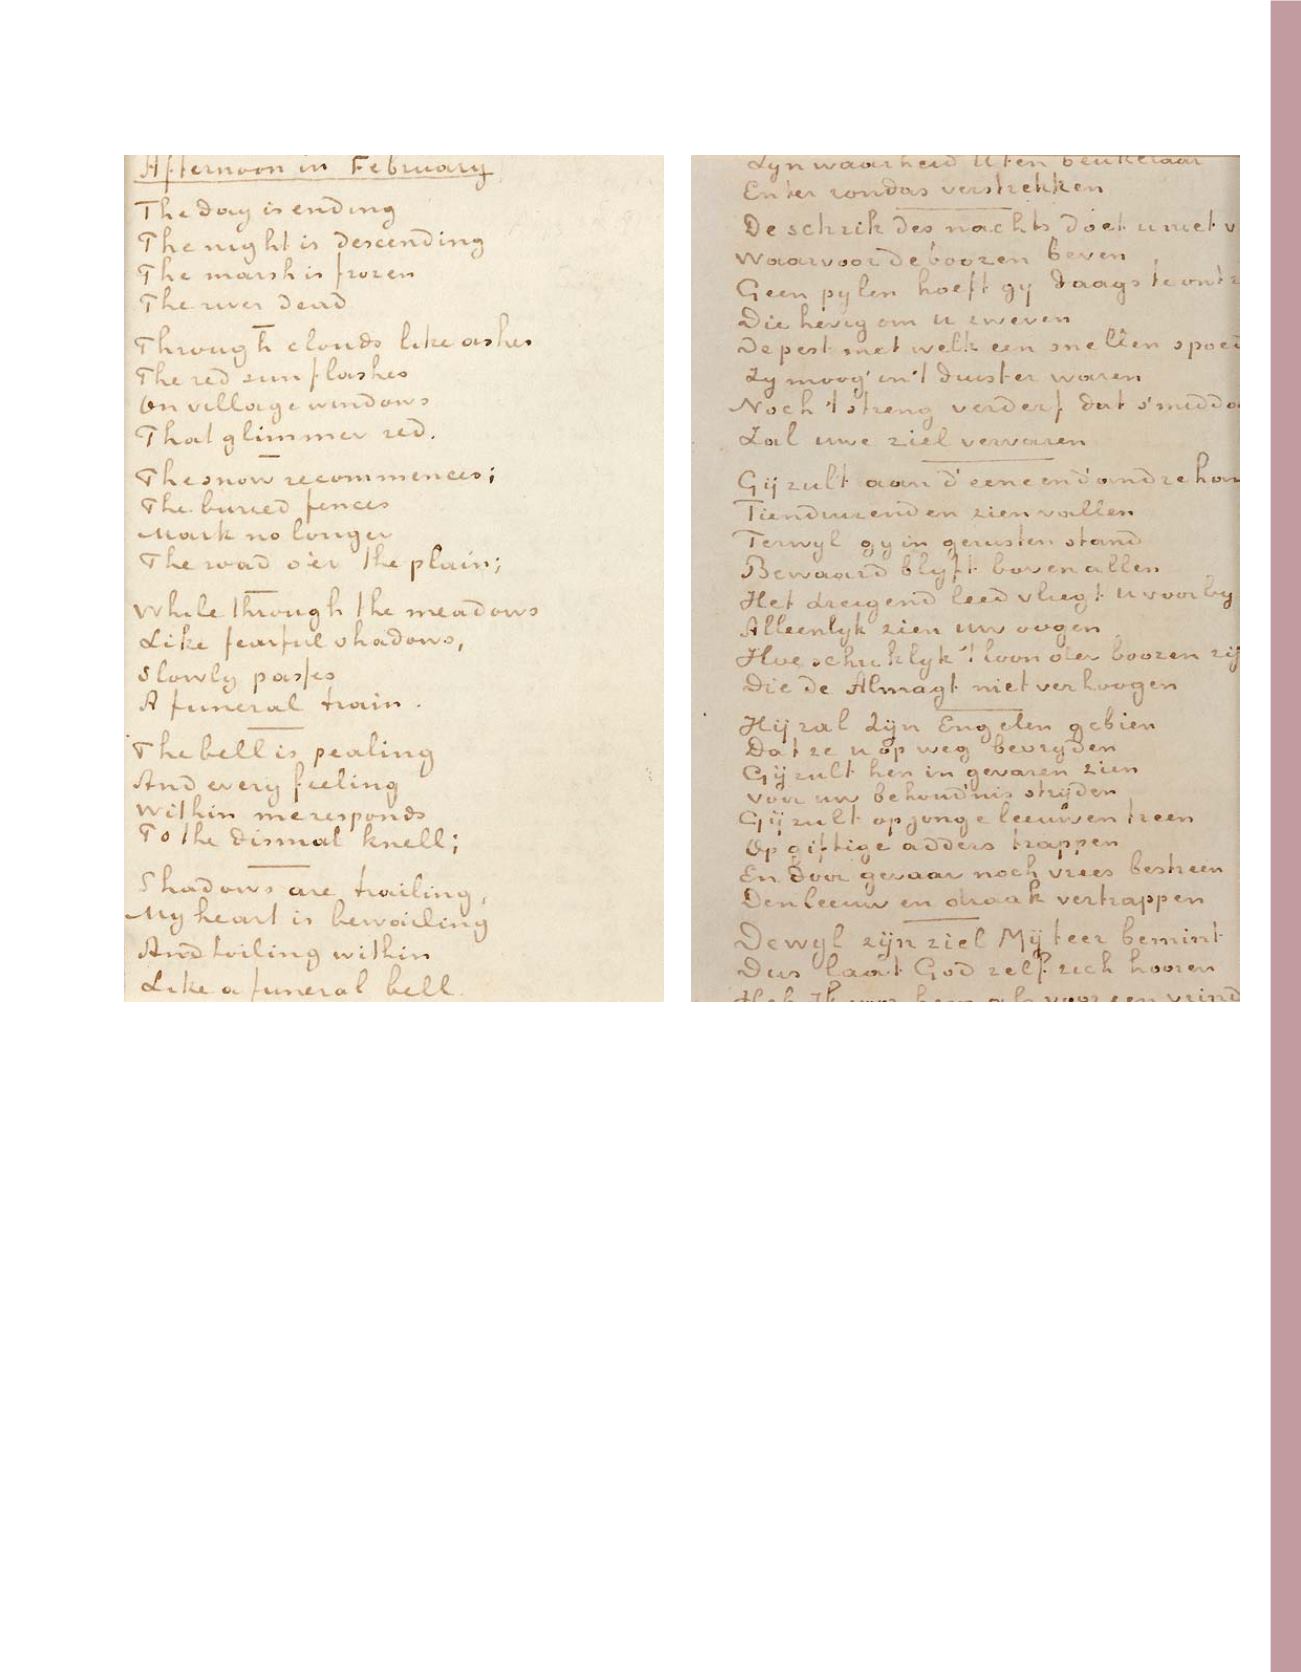 Afternoon in February
The day is ending
The night is descending
The marsh is frozen
The river dead
Through clouds like ashes
The red sun flashes
On village windows
That glimmer red.
The snow recommences;
The buried fences
Mark no longer
The road o'er the plain;
While through the meadows
Like fearful shadows,
Slowly passes
A funeral train.
The bell is pealing
And every feeling
Within me responds
To the dismal knell;
Shadows are trailing,
My heart is bewailing
And toiling within
Like a funeral bell.
Zyn waarheid U ten beukelaar
En ter rondas verstrekken
De schrik des nachts doet u niet
Waarvoor de boozen beven
Geen pylen hoeft gy daags te
Die hevig om u zweven
De pest met welk een snellen
Zy moog' in 't duister waren
Noch 't streng verderf dat
Zal uwe ziel vervaren
Gij zult aan d' eene en d' andre
Tienduizenden zien vallen
Terwyl gy in gerusten stand
Bewaard blyft boven allen
Het dreigend leed vliegt u voorby
Alleenlyk zien uw oogen
Hoe schriklyk 't loon der boozen
Die de Almagt niet verhoogen
Hij zal Zijn Engelen gebien
Dat ze u op weg bevryden
Gij zult hen in gevaren zien
Voor uw behoudnis strijden
Gij zult op jonge leeuwen treen
Op giftige adders trappen
En door gevaar noch vrees bestreen
Den leeuw en draak vertrappen
Dewyl zijn ziel Mij teer bemint
Dus laat God zelf zich hooren
Heb Ik voor hem als voor een vrind